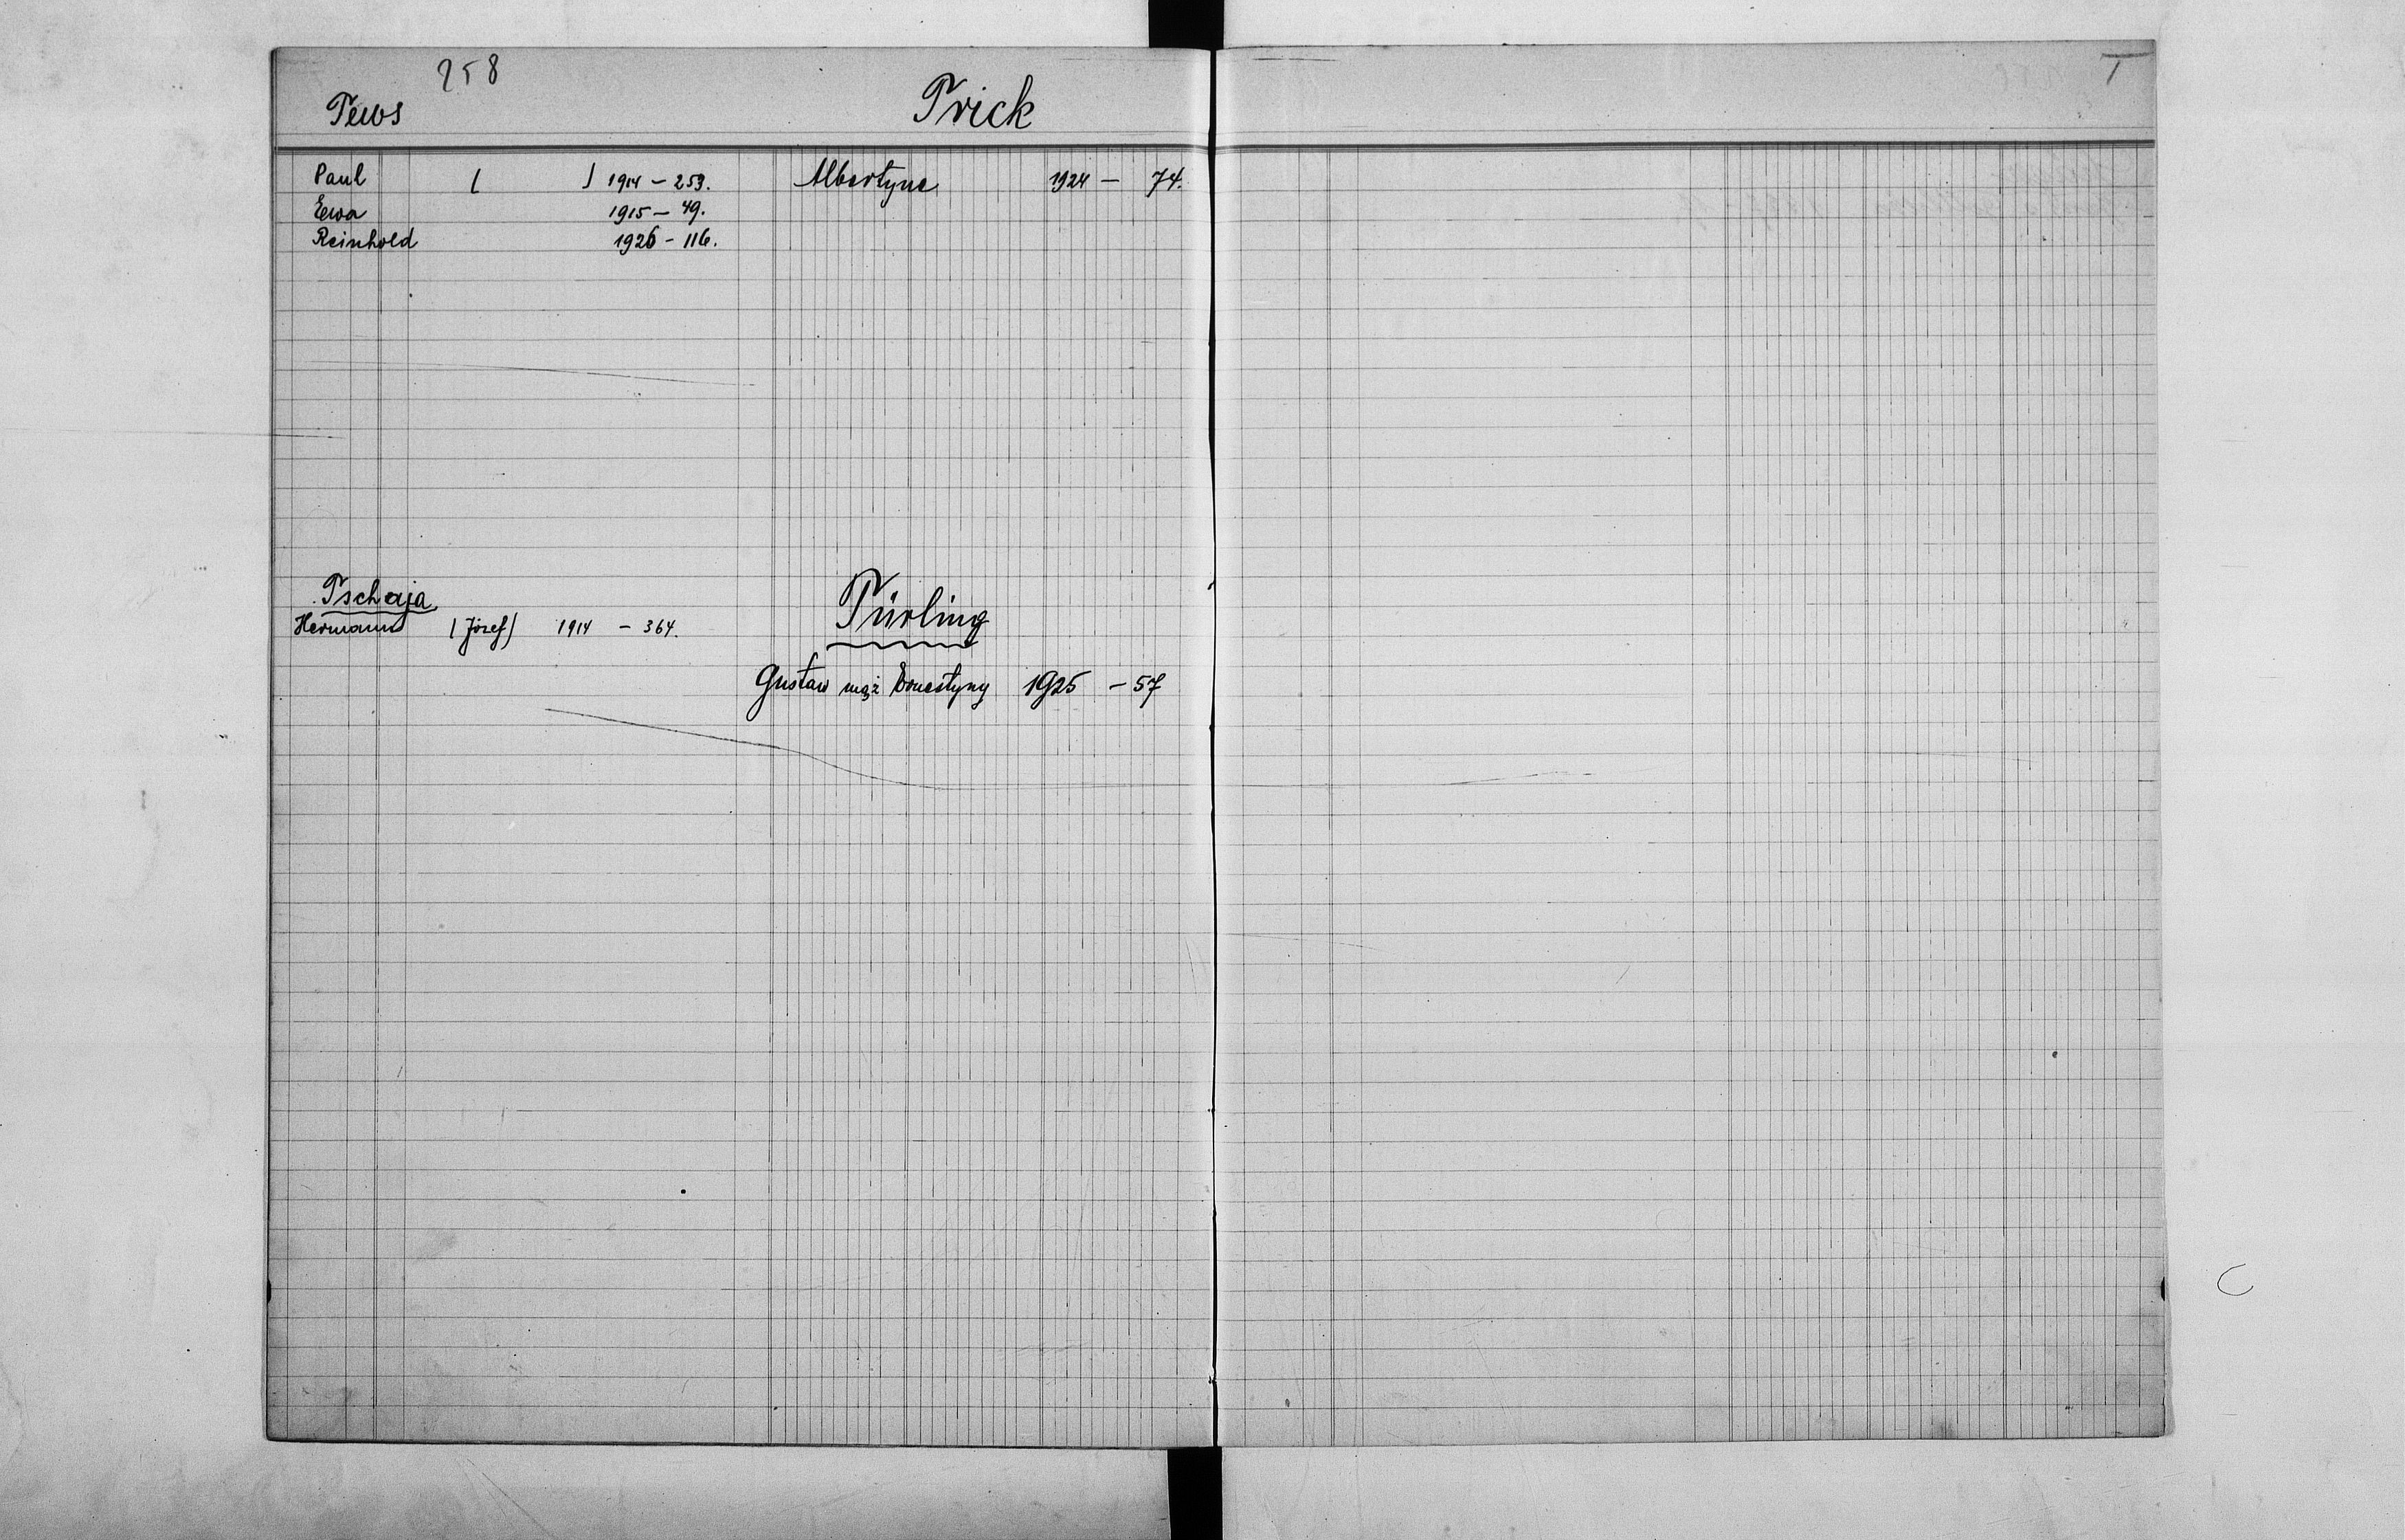 258
Tews
Paul ( ) 1914 - 259.
Ewa 1915 - 49.
Reinhold 1926 - 116.
Tschaja
Hermann (Józef) 1914 - 364.
Trick
Albertyna 1924 - 74.
Türling
Gustaw mąż Ernestyny 1925 - 57
T